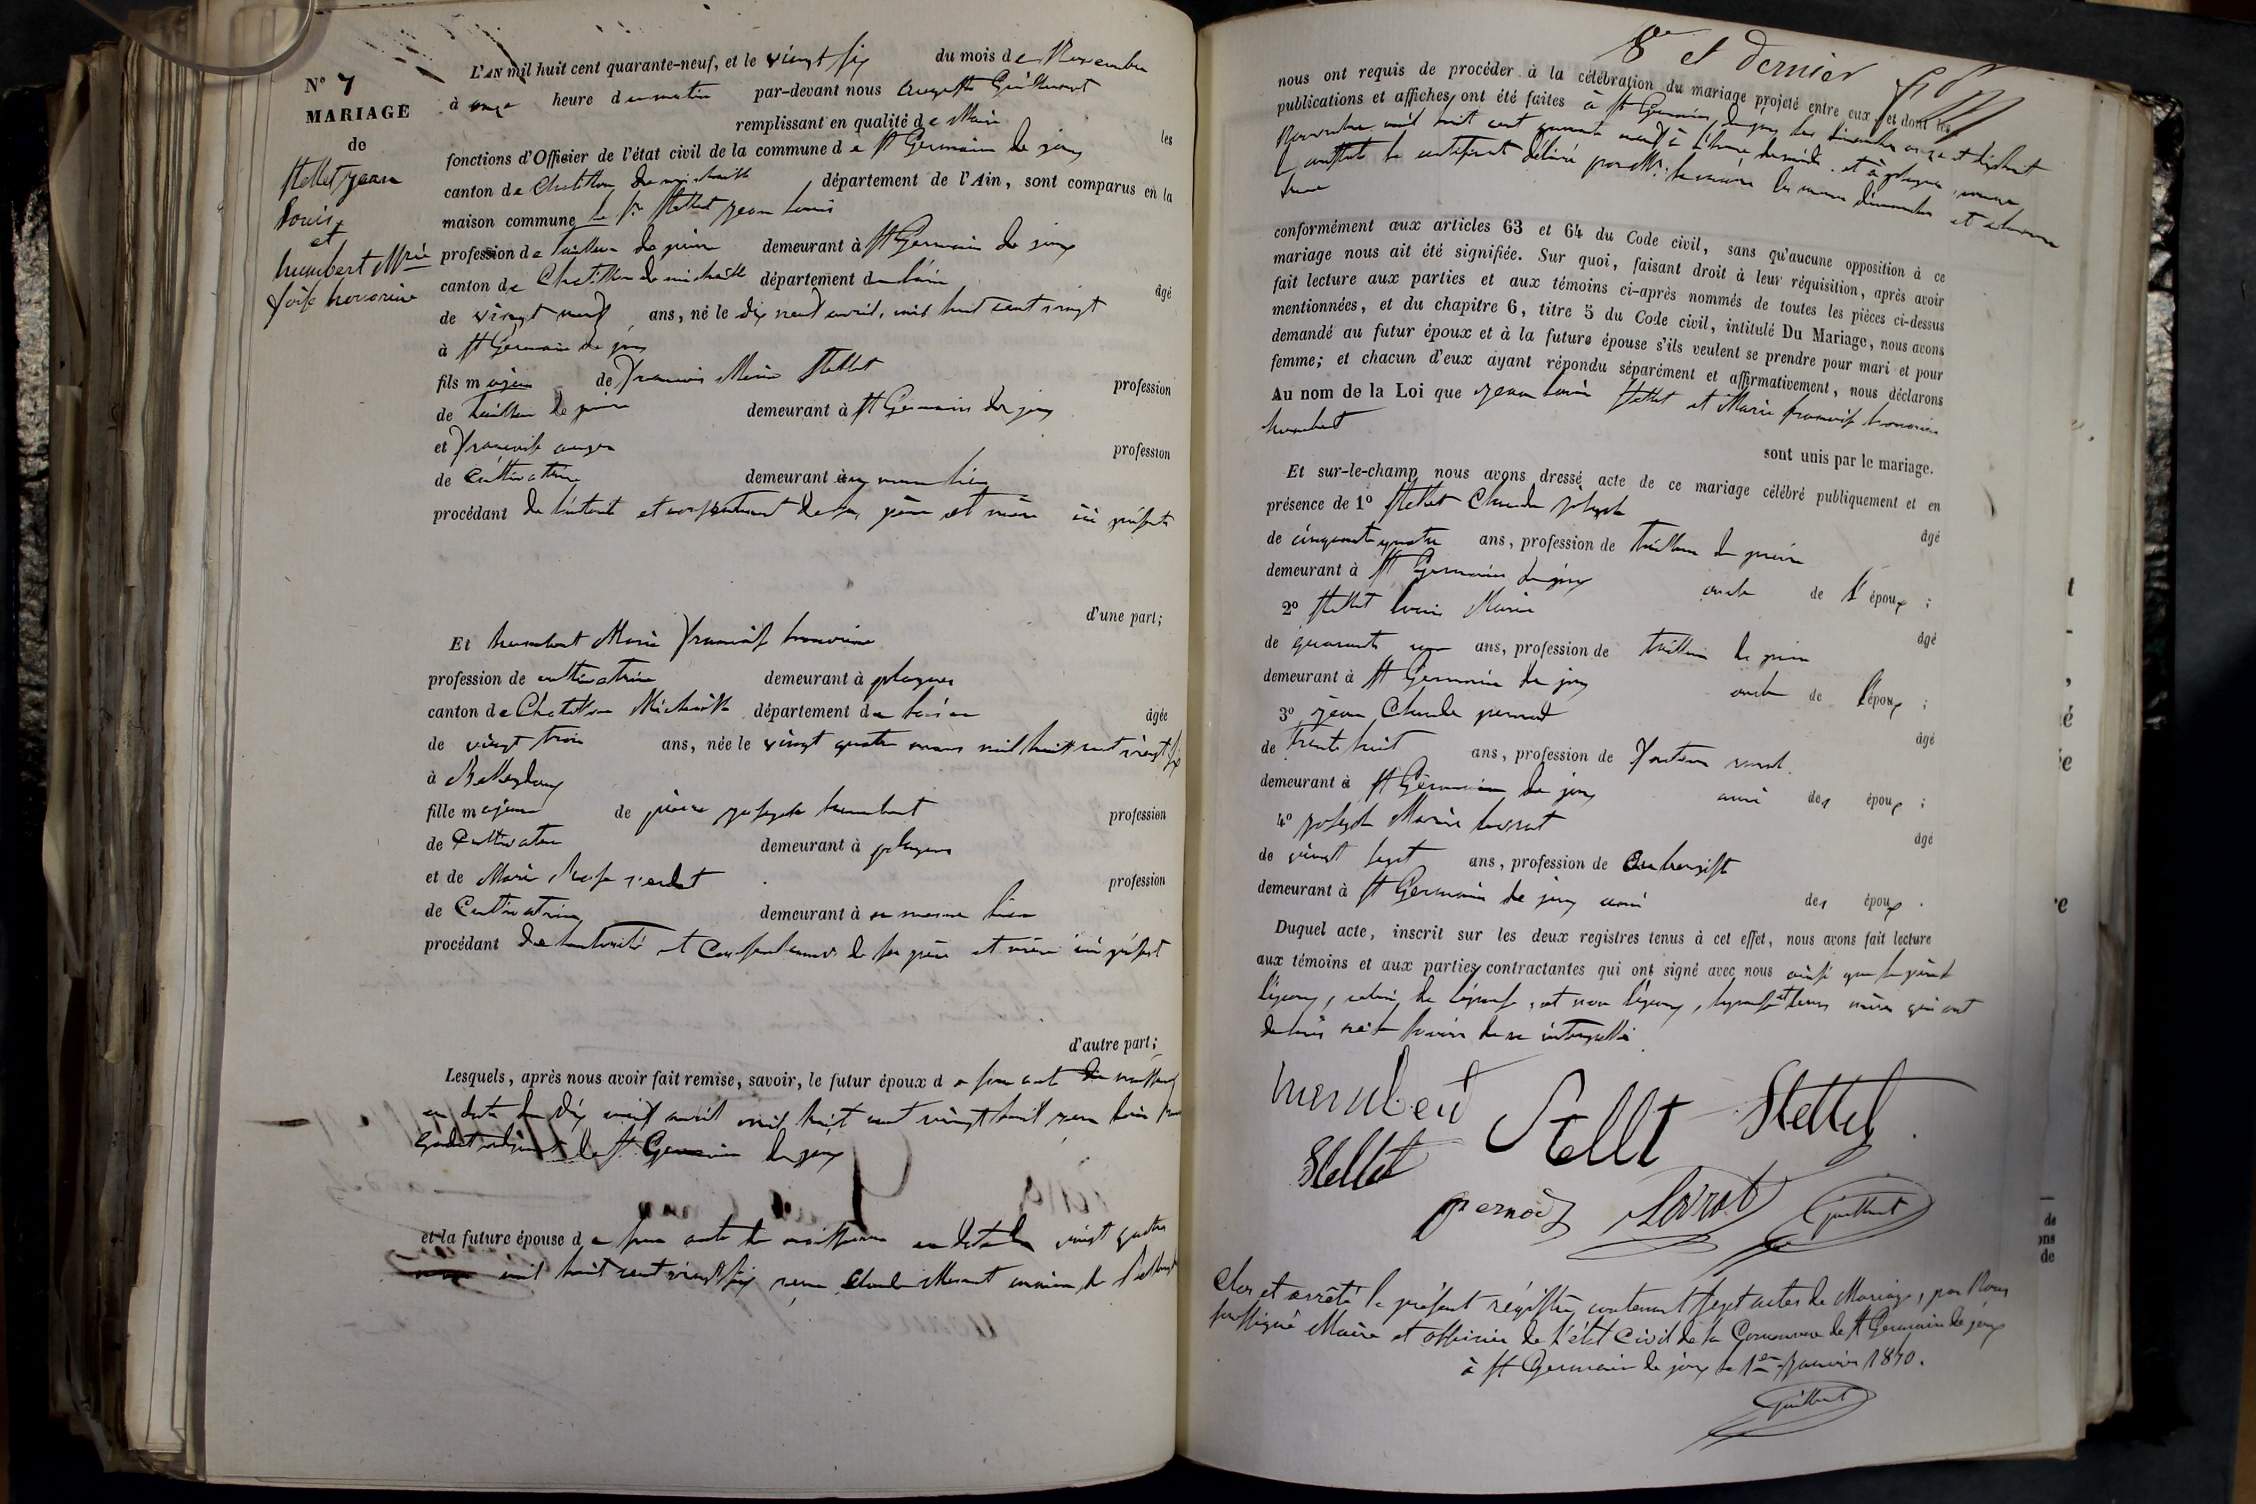 N° 7
MARIAGE
de
Stellet Jean
Louis
et
humbert Mrie
foise honorine
L'AN mil huit cent quarante-neuf, et le vingt six du mois de Novembre
à onze heure du matin par-devant nous Auguste Guilhermet
remplissant en qualité de Maire les
fonctions d'Officier de l'état civil de la commune de St Germain de joux
canton de Chatillon de michaille département de l'Ain, sont comparus en la
maison commune le Sr Stellet jean louis
profession de tailleur de pierre demeurant à St Germain de joux
canton de Chatillon de michaille département de l'ain âgé
de vingt neuf ans, né le dix neuf avril, mil huit cent vingt
à St Germain de joux
fils majeur de francois Marie Stellet profession
de tailleur de pierre demeurant à St Germain de joux
et francoise profession
de Cultivatrice demeurant au meme lieu
procédant de l'autorité et consentement de ses père et mère ici présents
d'une part;
Et humbert Marie francoise honorine
profession de cultivatrice demeurant à plagnes
canton de Chatillon Michaille département de l'ain âgée
de vingt trois ans, née le vingt quatre mars mil huit cent vingt six
à Belleydoux
fille majeure de pierre joseph humbert profession
de Cultivateur demeurant à plagnes
et de Marie profession
de Cultivatrice demeurant à ce meme lieu
procédant de l'autorité et consentement de ses père et mère ici présents
d'autre part;
Lesquels, après nous avoir fait remise, savoir, le futur époux de son acte de naissance
en date du dix neuf avril mil huit cent vingt
adjoint de St Germain de joux
et la future épouse de son acte de naissance en date du vingt quatre
mars mil huit cent vingt six Claude maire de Belleydoux
8e et dernier
nous ont requis de procéder à la célébration du mariage projeté entre eux, et dont les
publications et affiches ont été faites à St Germain de joux les dimanches onze et dixhuit
Novembre mil huit cent quarante neuf à l'heure de midi et à plagnes,
le certificat délivré par Mr. le maire les memes dimanches et
heure
conformément aux articles 63 et 64 du Code civil, sans qu'aucune opposition à ce
mariage nous ait été signifiée. Sur quoi, faisant droit à leur réquisition, après avoir
fait lecture aux parties et aux témoins ci-après nommés de toutes les pièces ci-dessus
mentionnées, et du chapitre 6, titre 5 du Code civil, intitulé Du Mariage, nous avons
demandé au futur époux et à la future épouse s'ils veulent se prendre pour mari et pour
femme; et chacun d'eux ayant répondu séparément et affirmativement, nous déclarons
Au nom de la Loi que jean louis Stellet et Marie francoise honorine
humbert
sont unis par le mariage.
Et sur-le-champ nous avons dressé acte de ce mariage célébré publiquement et en
présence de 1° Stellet Claude joseph âgé
de cinquante quatre ans, profession de tailleur de pierre
demeurant à St Germain de joux oncle de l'époux ;
2° Stellet louis Marie âgé
de quarante ans, profession de tailleur de pierre
demeurant à St Germain de joux oncle de l'époux ;
3° jean Claude pernod âgé
de trente huit ans, profession de facteur rural
demeurant à St Germain de joux ami des époux ;
4° joseph Marie âgé
de vingt sept ans, profession de Aubergiste
demeurant à St Germain de joux ami des époux .
Duquel acte, inscrit sur les deux registres tenus à cet effet, nous avons fait lecture
aux témoins et aux parties contractantes qui ont signé avec nous ainsi que le père de
l'époux, celui de l'épouse, et non l'époux, l'epouse et leurs mères qui ont
déclaré ne le savoir de ce interpellés
humbert Stellet Stellet
Stellet
pernod Guilhermet
Clos et arrêté le présent régistre contenant sept actes de Mariage, par Nous
soussigné Maire et officier de l'état Civil de la Commune de St Germain de joux
à St Germain de joux le 1er Janvier 1850.
Guilhermet